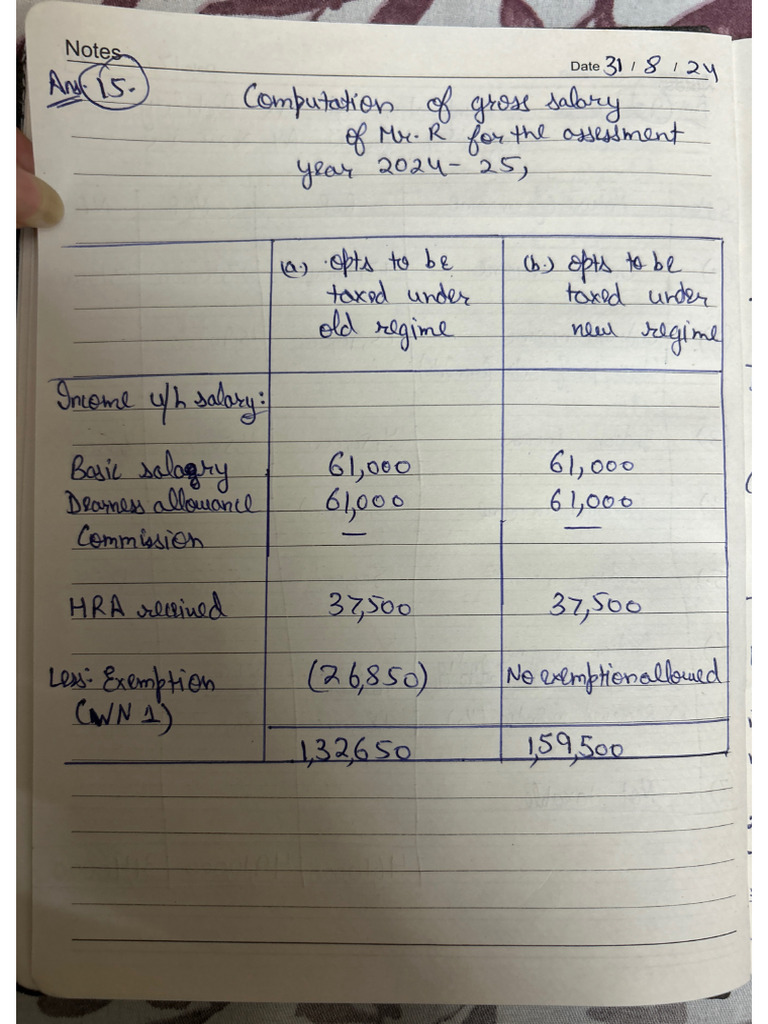 Notes
Date 31 / 8 / 24
Ans. 15.
Computation of gross salary
of Mr. R for the assessment
year 2024-25,
(a.) opts to be (b.) opts to be
taxed under taxed under
old regime new regime
Income u/h salary:
Basic salary 61,000 61,000
Dearness allowance 61,000 61,000
Commission — —
HRA received 37,500 37,500
Less:- Exemption (26,850) No exemption allowed
(WN 1)
1,32,650 1,59,500